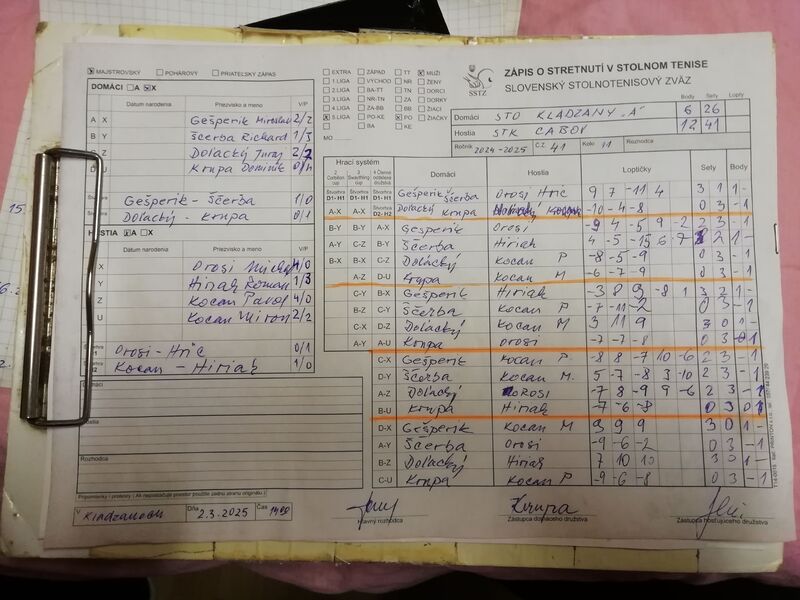 MAJSTROVSKÝ POHÁROVÝ PRIATEĽSKÝ ZÁPAS
DOMÁCI A X
Dátum narodenia Priezvisko a meno V/P
A X Gešperik Miroslav 2/2
B Y Ščerba Richard 1/3
Dolacký Juraj 2/2
D U Krupa Dominik 0/4
Gešperik - Ščerba 1/0
Dolacký - Krupa 0/1
HOSTIA A X
Dátum narodenia Priezvisko a meno V/P
X Orosi
Y Hiriak Roman 1/3
Z Kocan Pavol 4/0
U Kocan Miron 2/2
Orosi - Hric 0/1
Kocan - Hiriak 1/0
Domáci
Hostia
Rozhodca
Pripomienky i protesty (Ak nepostačuje priestor použite zadnú stranu originálu)
V Kladzanoch Dňa 2.3.2025 Čas
EXTRA ZÁPAD TT MUŽI
1.LIGA VÝCHOD NR ŽENY
2.LIGA BA-TT TN DORKY
3.LIGA NR-TN ZA DORCI
4.LIGA ZA-BB BB ŽIACI
5.LIGA PO-KE PO ŽIAČKY
BA KE
MO
SSTZ
ZÁPIS O STRETNUTÍ V STOLNOM TENISE
SLOVENSKÝ STOLNOTENISOVÝ ZVÄZ
Body Sety Lopty
Domáci STO KLADZANY "A" 6 26
Hostia STK CABOV 12 41
Ročník 2024-2025 Č.Z. 41 Kolo Rozhodca
Hrací systém Domáci Hostia Loptičky Sety Body
Štvorhra D1 - H1 Štvorhra D1 - H1 Štvorhra D1 - H1 Gešperik Ščerba Orosi Hric 9 7 -11 4 3 1 1 -
Štvorhra A-X A-X Štvorhra D2- H2 Dolacký Krupa -10 -4 -8 0 3 - 1
B-Y B-Y A-X Gešperik Orosi -9 4 -5 9 -2 2 3 - 1
A-Y C-Z B-Y Ščerba Hiriak 4 -5 -15 6 7 3 2 1 -
B-X B-X C-Z Dolacký Kocan P -8 -5 -9 0 3 - 1
A-Z D-U Krupa Kocan M -6 -7 -9 0 3 - 1
C-Y B-X Gešperik Hiriak -3 8 9 -8 1 3 2 1 -
B-Z C-Y Ščerba Kocan P -7 -11 -2 0 3 - 1
C-X D-Z Dolacký Kocan M 3 11 9 3 0 1 -
A-Y A-U Krupa Orosi -7 -7 -8 0 3 0 1
C-X Gešperik Kocan P. -8 8 -7 10 -6 2 3 - 1
D-Y Ščerba Kocan M. 5 -7 -8 3 -10 2 3 - 1
A-Z Dolacký OROSI -7 8 -9 9 -6 2 3 - 1
B-U Krupa Hiriak -7 -6 -8 0 3 0 1
D-X Gešperik Kocan M 3 9 9 3 0 1 -
A-Y Ščerba Orosi -9 -6 -2 0 3 - 1
B-Z Dolacký Hiriak 7 10 10 3 0 1 -
C-U Krupa Kocan P -9 -6 -8 0 3 - 1
Hlavný rozhodca
Krupa
Zástupca domáceho družstva
Zástupca hosťujúceho družstva